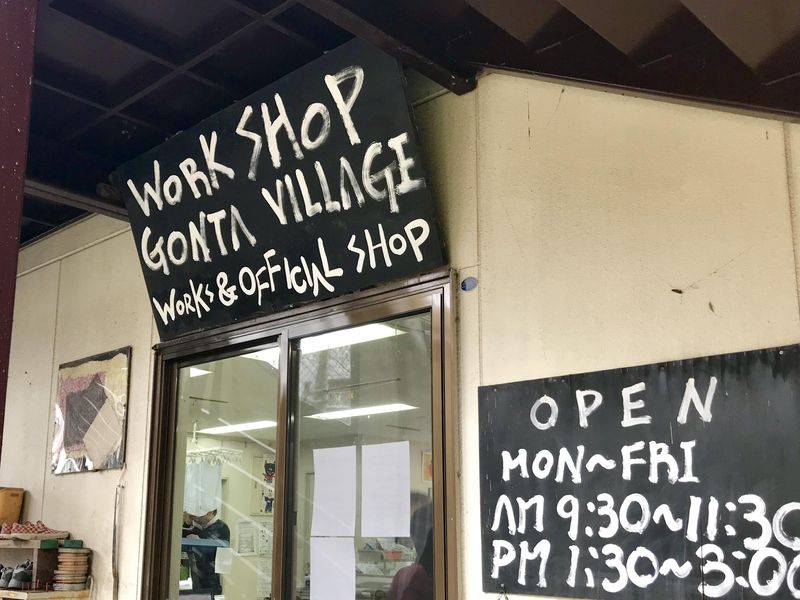 WORK SHOP
GONTA VILLAGE
WORKS & OFFICIAL SHOP
OPEN
MON~FRI
AM 9:30~11:30
PM 1:30~3:00